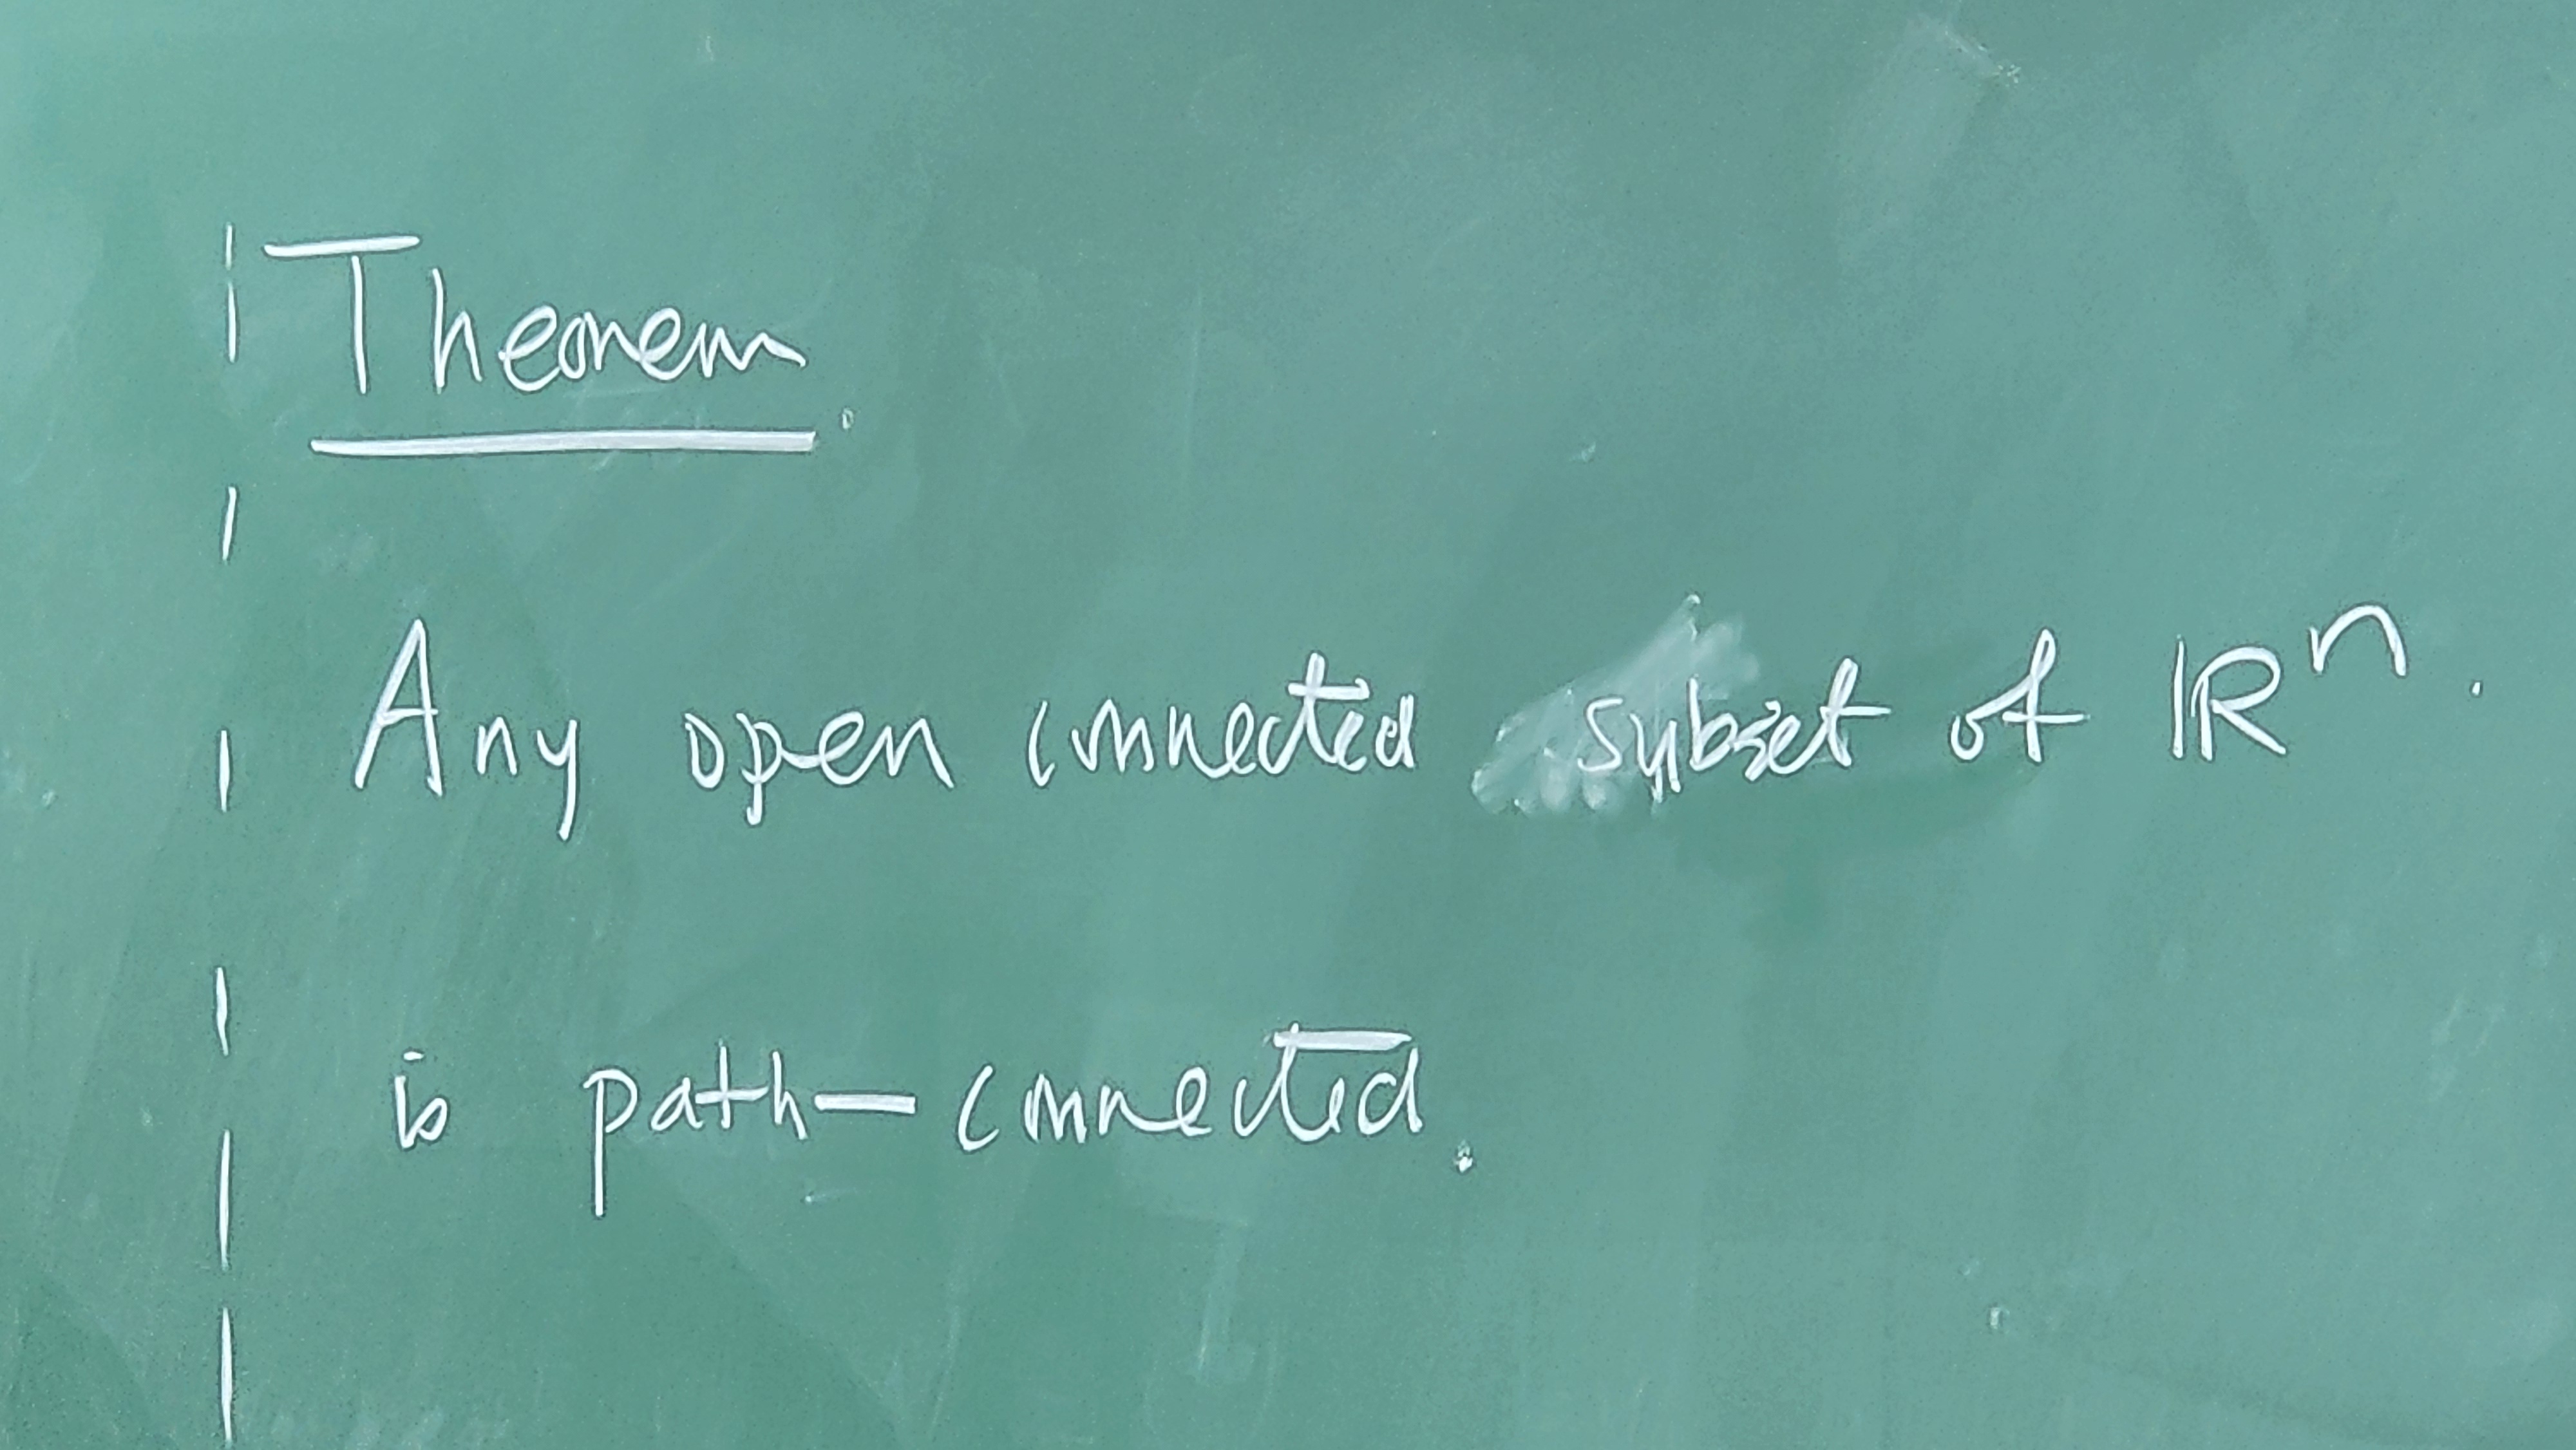 Theorem.
Any open connected subset of ℝⁿ.
is path-connected.